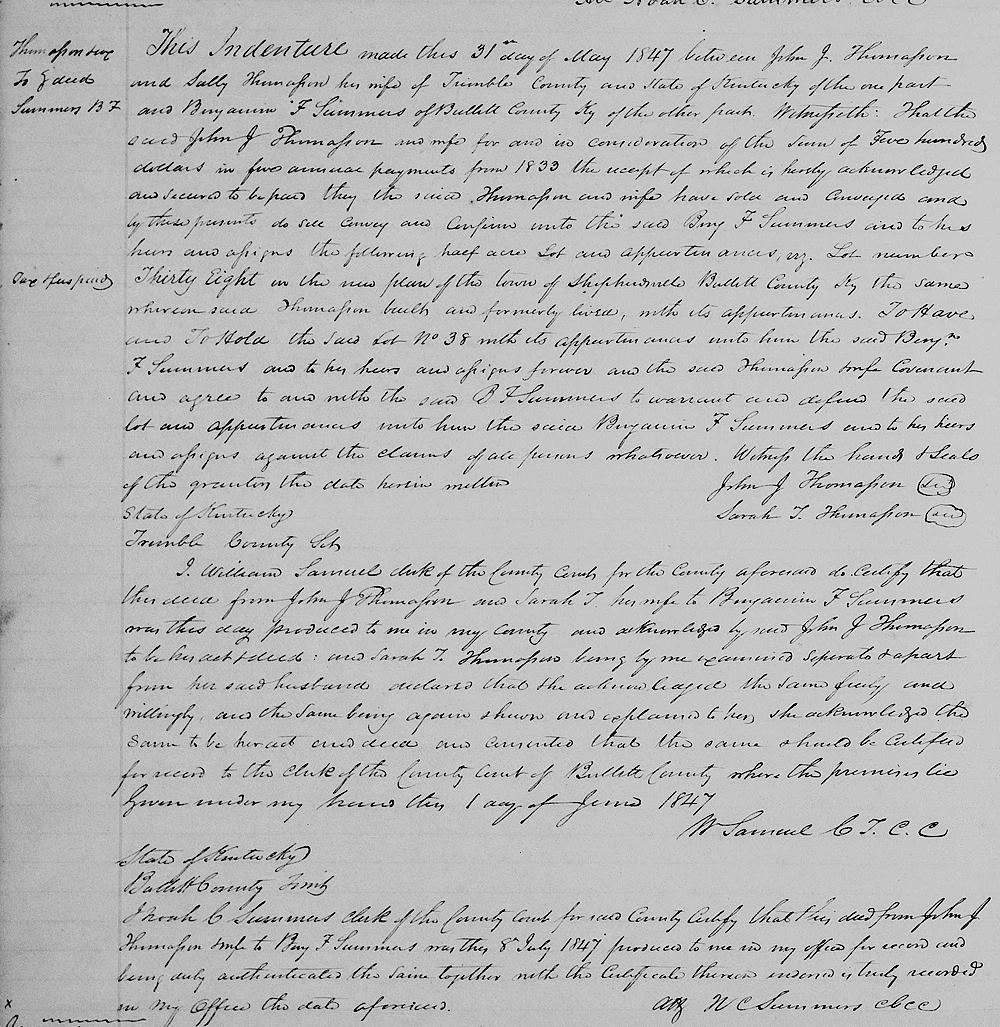 Att Noah C. Summers clk
Thomasson & wife
To } deed
Summers B F
This Indenture made this 31st day of May 1847 between John J. Thomasson
and Sally Thomasson his wife of Trimble County and State of Kentucky of the one part
and Benjamin F Summers of Bullitt County Ky of the other part. Witnesseth: That the
said John J Thomasson and wife for and in consideration of the Sum of Five hundred
dollars in five annual payments from 1833 the receipt of which is hereby acknowledged
and secured to be paid they the said Thomasson and wife have sold and Conveyed and
by these presents do sell Convey and Confirm unto the said Benj F Summers and to his
heirs and assigns the following half acre Lot and appurtinances, viz. Lot number
Tax & fees paid
Thirty Eight in the new plan of the town of Shepherdsville Bullitt County Ky the same
whereon said Thomasson built and formerly lived, with its appurtinances. To Have
and To Hold the Said Lot No 38 with its appurtinances unto him the said Benjn.
F Summers and to his heirs and assigns forever and the said Thomasson & wife Covenant
and agree to and with the said B F Summers to warrant and defend the said
lot and appurtinances unto him the said Benjamin F Summers and to his heirs
and assigns against the claims of all persons whatsoever. Witness the hands & Seals
of the grantors the date herein written
John J Thomasson
Sarah T. Thomasson
State of Kentucky
Trimble County Sct
I. William Samuel clerk of the County Court for the County aforesaid do Certify that
this deed from John J Thomasson and Sarah T. his wife to Benjamin F Summers
was this day produced to me in my County and acknowledged by said John J Thomasson
to be his act & deed: and Sarah T. Thomasson being by me examined seperate & apart
from her said husband declared that she acknowledged the same freely and
willingly, and the same being again shewn and explained to her, she acknowledged the
same to be her act and deed and consented that the same should be Certified
for record to the Clerk of the County Court of Bullitt County where the premises lie
Given under my hand this 1 day of June 1847
W Samuel C T. C. C
State of Kentucky
Bullitt County
I Noah C Summers Clerk of the County Court for said County Certify that this deed from John J
Thomasson & wife to Benj F Summers was this 8th July 1847 produced to me in my office for record and
being duly authenticated the same together with the Certificate thereon endorsed is truly recorded
in my Office the date aforesaid.
Att N C Summers cbcc
x